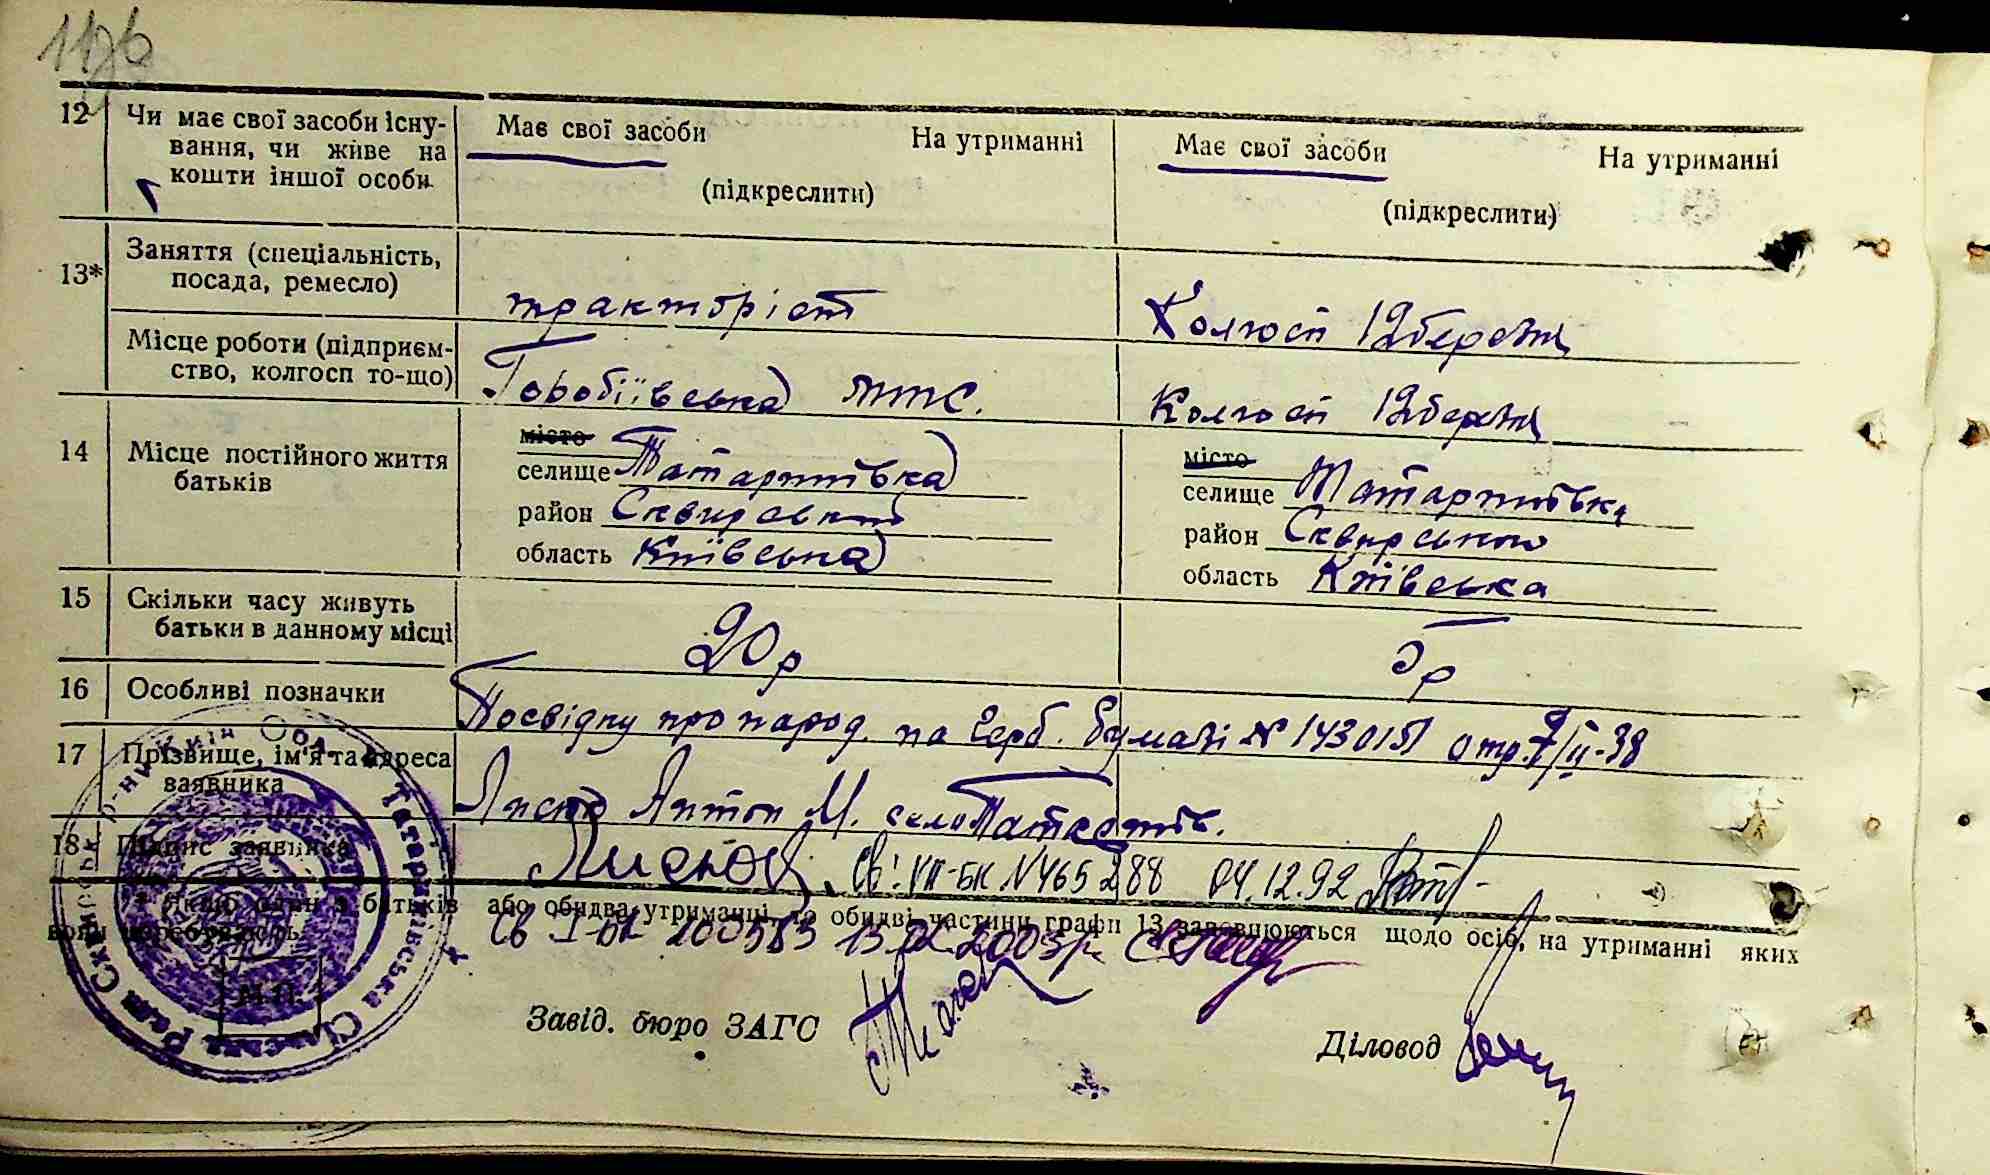 12 Чи має свої засоби існу-
вання, чи живе на
кошти іншої особи
Має свої засоби На утриманні
(підкреслити)
Має свої засоби На утриманні
(підкреслити)
13* Заняття (спеціальність,
посада, ремесло)
тракторіст
Колгосп 12 березня
Місце роботи (підприєм-
ство, колгосп то-що)
Горобіївська МТС.
Колгосп 12 березня
14 Місце постійного життя
батьків
місто
селище Татаринівка
район Сквирський
область Київська
місто
селище Татаринівка
район Сквирського
область Київська
15 Скільки часу живуть
батьки в данному місці
20 р
5 р
16 Особливі позначки
Посвідку про народ. на Герб. бумазі №
17 Прізвище, ім'я та адреса
заявника
Антон М. село
18 Підпис заявника
Св! VII-БК №465288 04.12.92
* Якщо один з батьків або обидва утриманці, то обидві частини графи 13 заповнюються щодо осіб, на утриманні яких
вони перебувають.
Св I-БК 2003р.
М.П.
Завід. бюро ЗАГС
Діловод
Татаринівська Сільська Рада